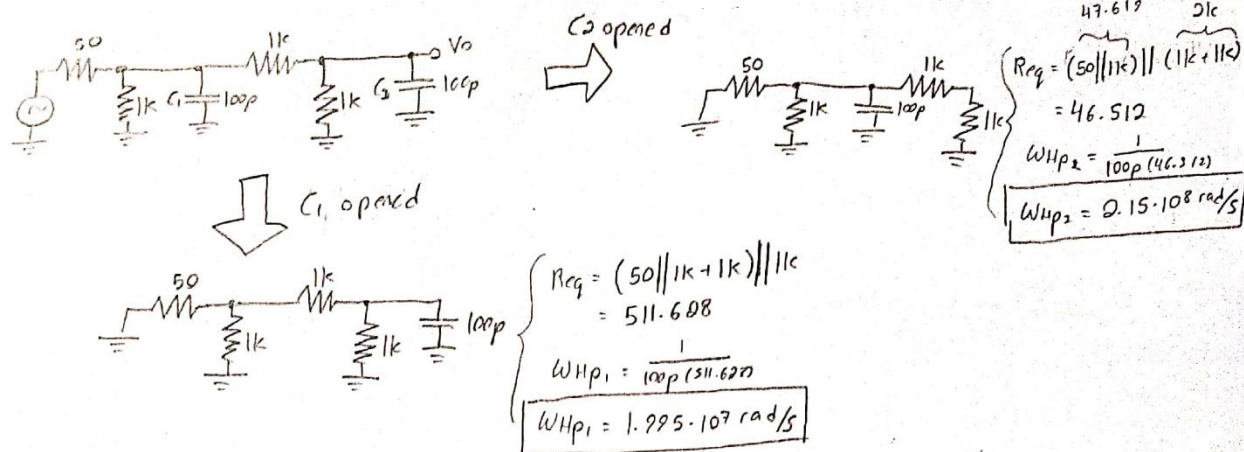 50
1k
C1
100p
1k
1k
C2
100p
Vo
C2 opened
50
1k
100p
1k
1k
47.619
2k
Req = (50||1k)||(1k+1k)
= 46.512
WHP2 = 1
100p (46.512)
WHP2 = 2.15·10^8 rad/s
C1, opened
50
1k
1k
1k
100p
Req = (50||1k+1k)||1k
= 511.628
WHP1 = 1
100p (511.628)
WHP1 = 1.995·10^7 rad/s